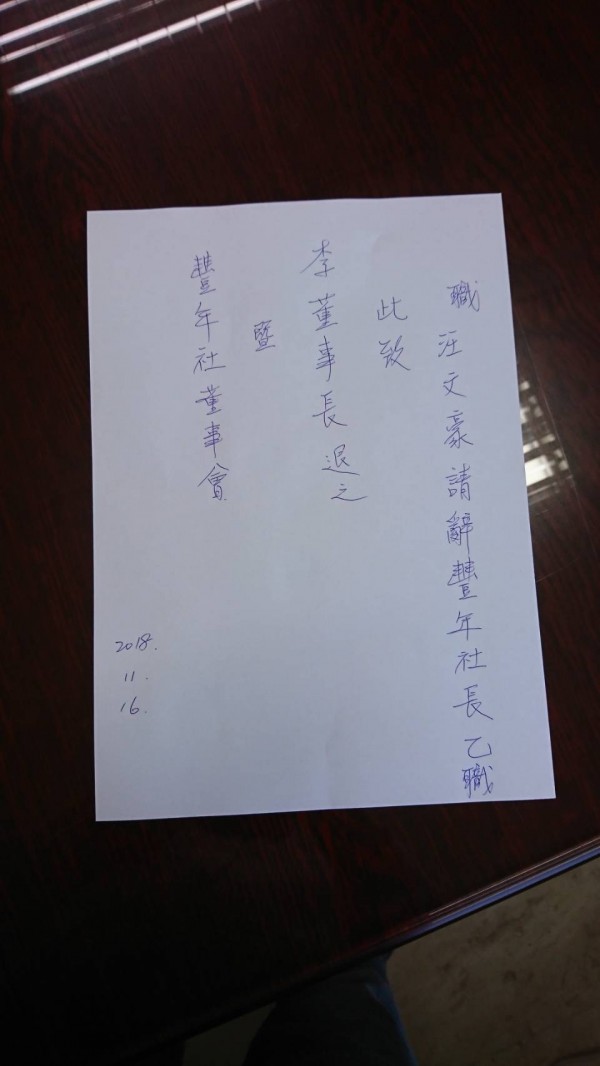 職汪文豪請辭豐年社長乙職
此致
李董事長退之
暨
豐年社董事會
2018.
11.
16.